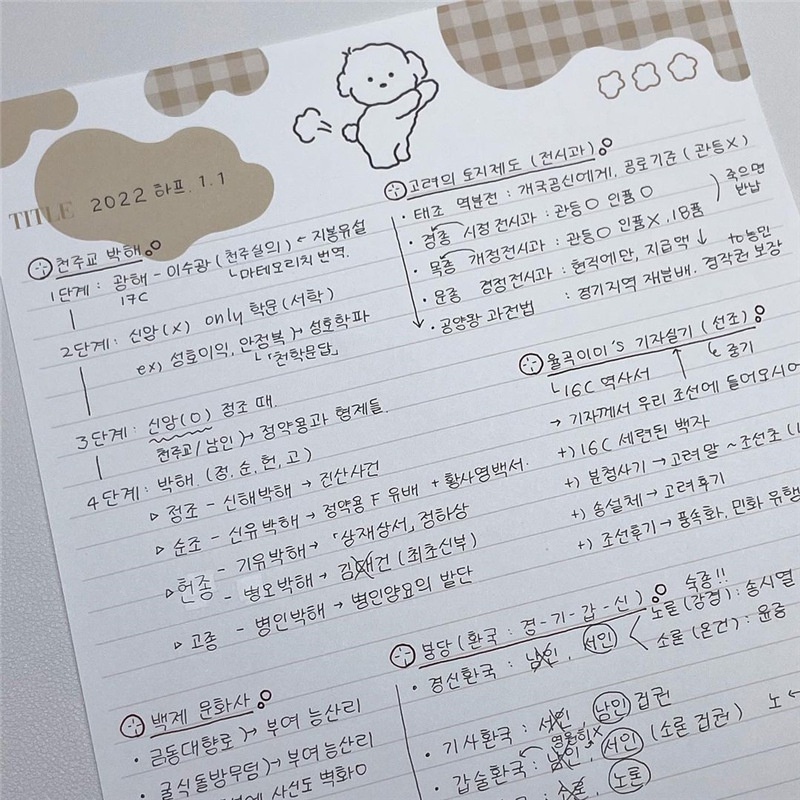 TITLE
2022 하프. 1. 1
천주교 박해
1단계 : 광해 - 이수광 (천주실의) ← 지봉유설
17C
마테오리치 번역.
2단계 : 신앙(X) only 학문 (서학)
ex) 성호이익, 안정복 → 성호학파
「천학문답」
3단계 : 신앙(O) 정조 때.
천주교/남인 → 정약용과 형제들.
4단계 : 박해. (정, 순, 헌, 고)
▷ 정조 - 신해박해 → 진산사건
▷ 순조 - 신유박해 → 정약용 F 유배 + 황사영백서.
▷ 헌종 - 기유박해 → 「상재상서」, 정하상
- 병오박해 → 김대건 (최초신부)
▷ 고종 - 병인박해 → 병인양요의 발단
백제 문화사
· 금동대향로 → 부여 능산리
· 굴식돌방무덤 → 부여 능산리
사신도 벽화O
고려의 토지제도 (전시과)
· 태조 역분전 : 개국공신에게, 공로기준 (관등X)
· 경종 시정전시과 : 관등O 인품O
죽으면 반납
· 목종 개정전시과 : 관등O 인품X, 18품
· 문종 경정전시과 : 현직에만, 지급액↓
to농민
· 공양왕 과전법 : 경기지역 재분배. 경작권 보장
율곡이이's 기자실기 (선조)
16C 역사서
중기
→ 기자께서 우리 조선에 들어오시어
+) 16C 세련된 백자
+) 분청사기 → 고려말 ~ 조선초
+) 송설체 → 고려후기
+) 조선후기 → 풍속화, 민화 유행
붕당 (환국 : 경-기-갑-신)
숙종!!
· 경신환국 : 남인, 서인
노론 (강경) : 송시열
소론 (온건) : 윤증
· 기사환국 : 서인, 남인 집권
· 갑술환국 : 남인, 서인 (소론 집권) 노 ←
소론, 노론